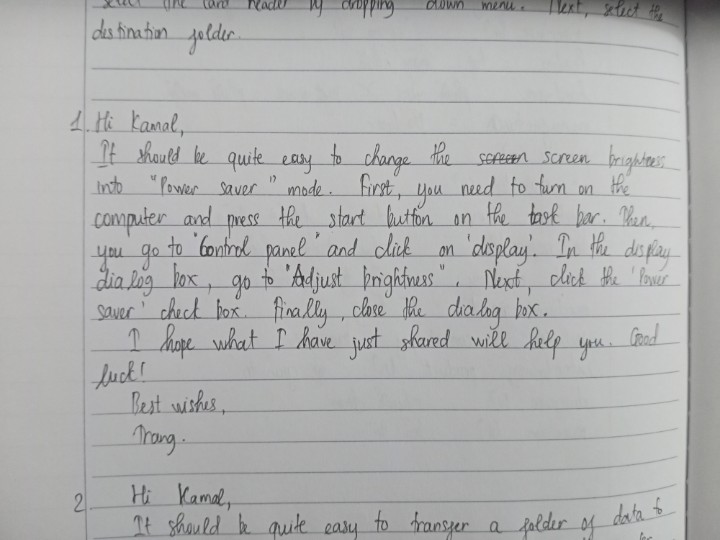 select the card reader by dropping down menu. Next, select the
destination folder.
1. Hi Kamal,
It should be quite easy to change the screen screen brightness
into "Power saver" mode. First, you need to turn on the
computer and press the start button on the task bar. Then,
you go to "Control panel" and click on 'display'. In the display
dialog box, go to "Adjust brightness". Next, click the 'Power
saver' check box. Finally, close the dialog box.
I hope what I have just shared will help you. Good
luck!
Best wishes,
Trang.
2 Hi Kamal,
It should be quite easy to transfer a folder of data to